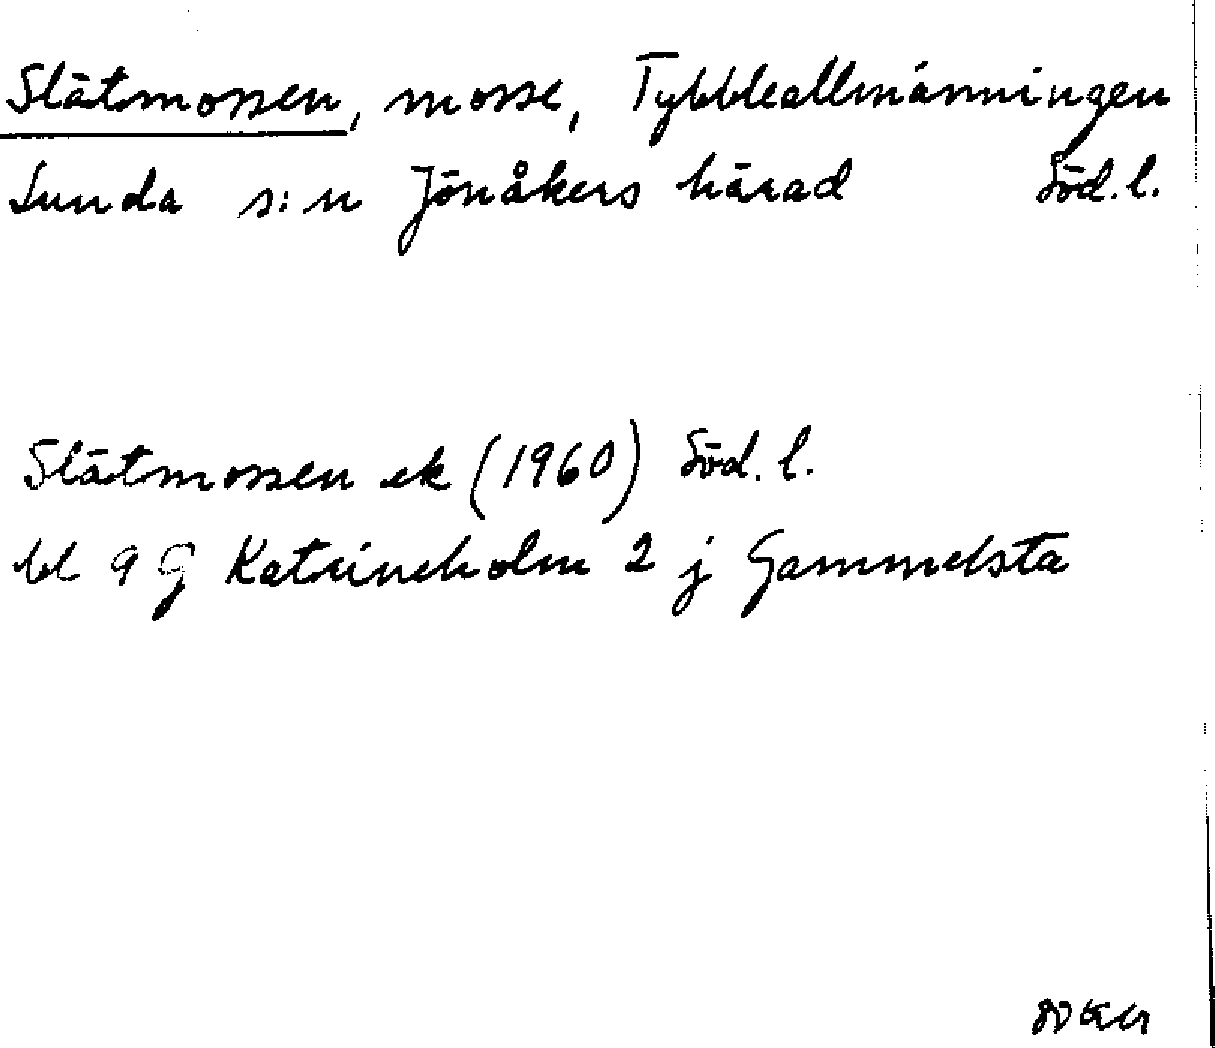 Slätmossen, mosse, Tybbleallmänningen
Lunda s:n Jönåkers härad Söd.l.
Slätmossen ek (1960) Söd.l.
bl 9 G Katrineholm 2 j Gammelsta